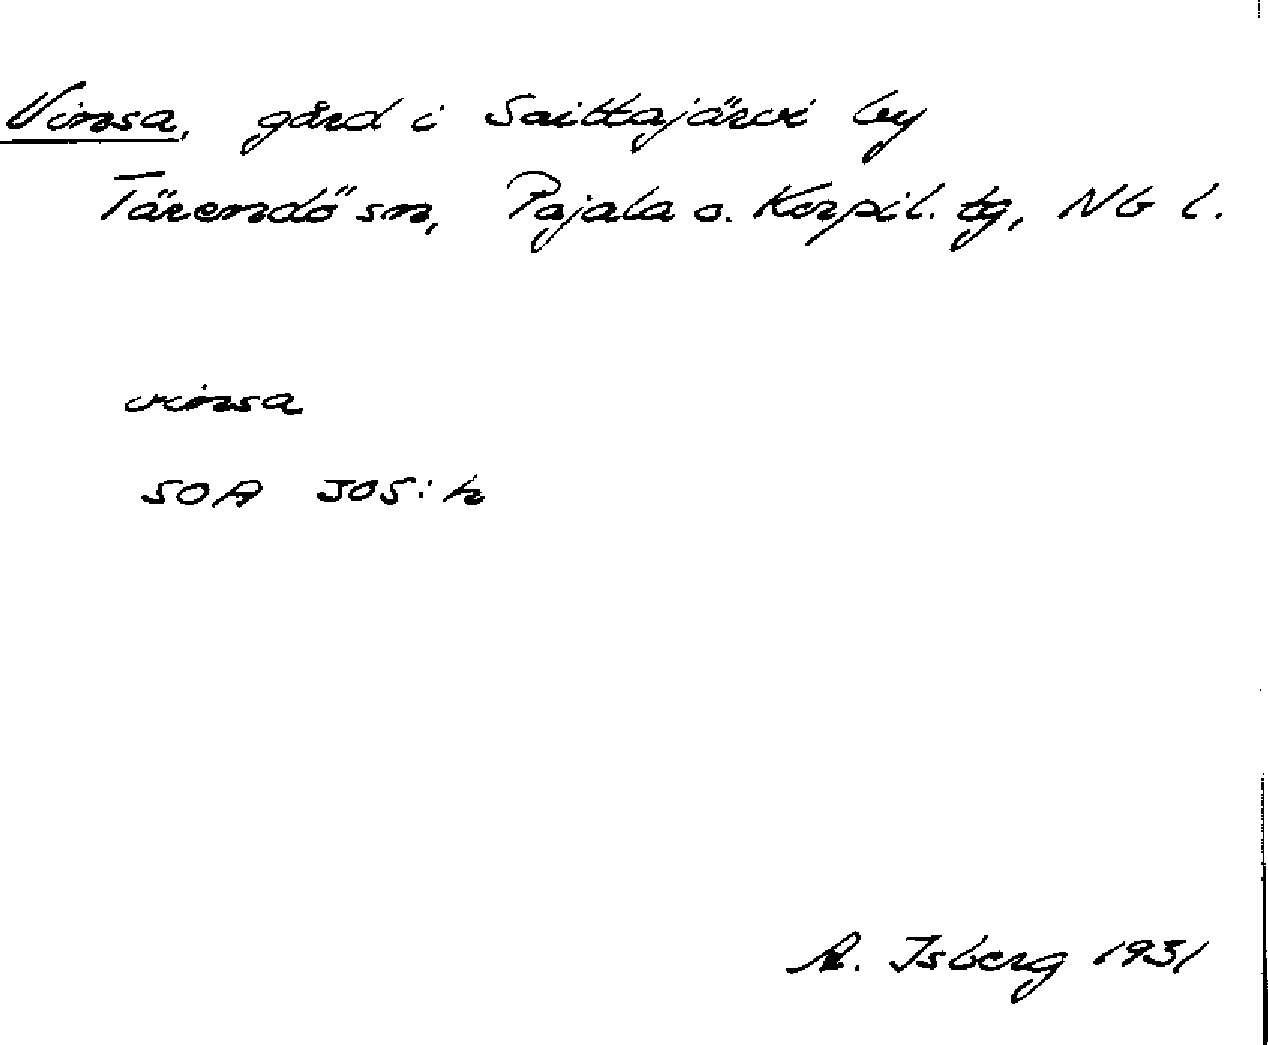 Vinsa, gård i Saittajärvi by
Tärendö sn, Pajala o. Korpil. tg, Nb l.
vinsa
SOA JOS: h
A. Isberg 1931